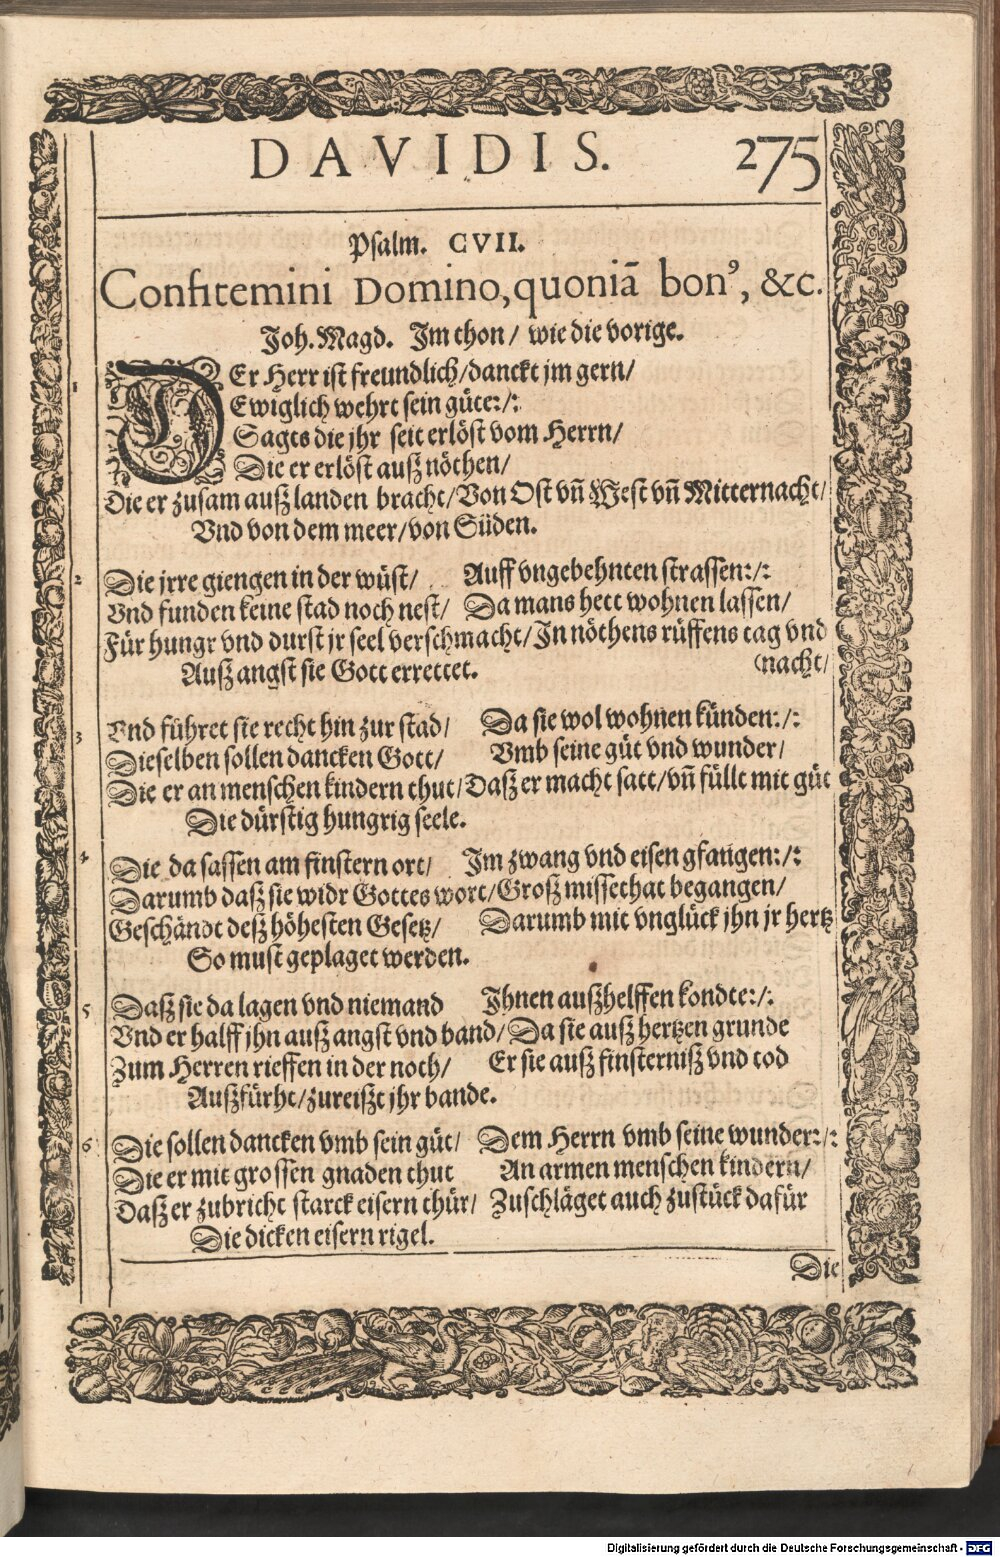 DAVIDIS. 275
Psalm. CVII.
Confitemini Domino, quoniã bonꝰ, &c.
Joh. Magd. Im thon / wie die vorige.
1 DEr Herr ist freundlich / danckt jm gern /
Ewiglich wehrt sein güte:/:
Sagts die jhr seit erlöst vom Herrn /
Die er erlöst auß nöthen /
Die er zusam auß landen bracht / Von Ost vñ West vñ Mitternacht /
Vnd von dem meer / von Süden.
2 Die jrre giengen in der wüst / Auff vngebehnten strassen:/:
Vnd funden keine stad noch nest / Da mans hett wohnen lassen /
Für hungr vnd durst jr seel verschmacht / In nöthens rüffens tag vnd
Auß angst sie Gott errettet. (nacht /
3 Vnd führet sie recht hin zur stad / Da sie wol wohnen künden:/:
Dieselben sollen dancken Gott / Vmb seine güt vnd wunder /
Die er an menschen kindern thut / Daß er macht satt / vñ füllt mit güt
Die dürstig hungrig seele.
4 Die da sassen am finstern ort / Im zwang vnd eisen gfangen:/:
Darumb daß sie widr Gottes wort / Groß missethat begangen /
Geschändt deß höhesten Gesetz / Darumb mit vnglück jhn jr hertz
So must geplaget werden.
5 Daß sie da lagen vnd niemand Ihnen außhelffen kondte:/:
Vnd er halff jhn auß angst vnd band / Da sie auß hertzen grunde
Zum Herren rieffen in der noth / Er sie auß finsterniß vnd tod
Außfürht / zureißt jhr bande.
6 Die sollen dancken vmb sein güt / Dem Herrn vmb seine wunder:/:
Die er mit grossen gnaden thut An armen menschen kindern /
Daß er zubricht starck eisern thür / Zuschläget auch zustück dafür
Die dicken eisern rigel.
Die
Digitalisierung gefördert durch die Deutsche Forschungsgemeinschaft - DFG